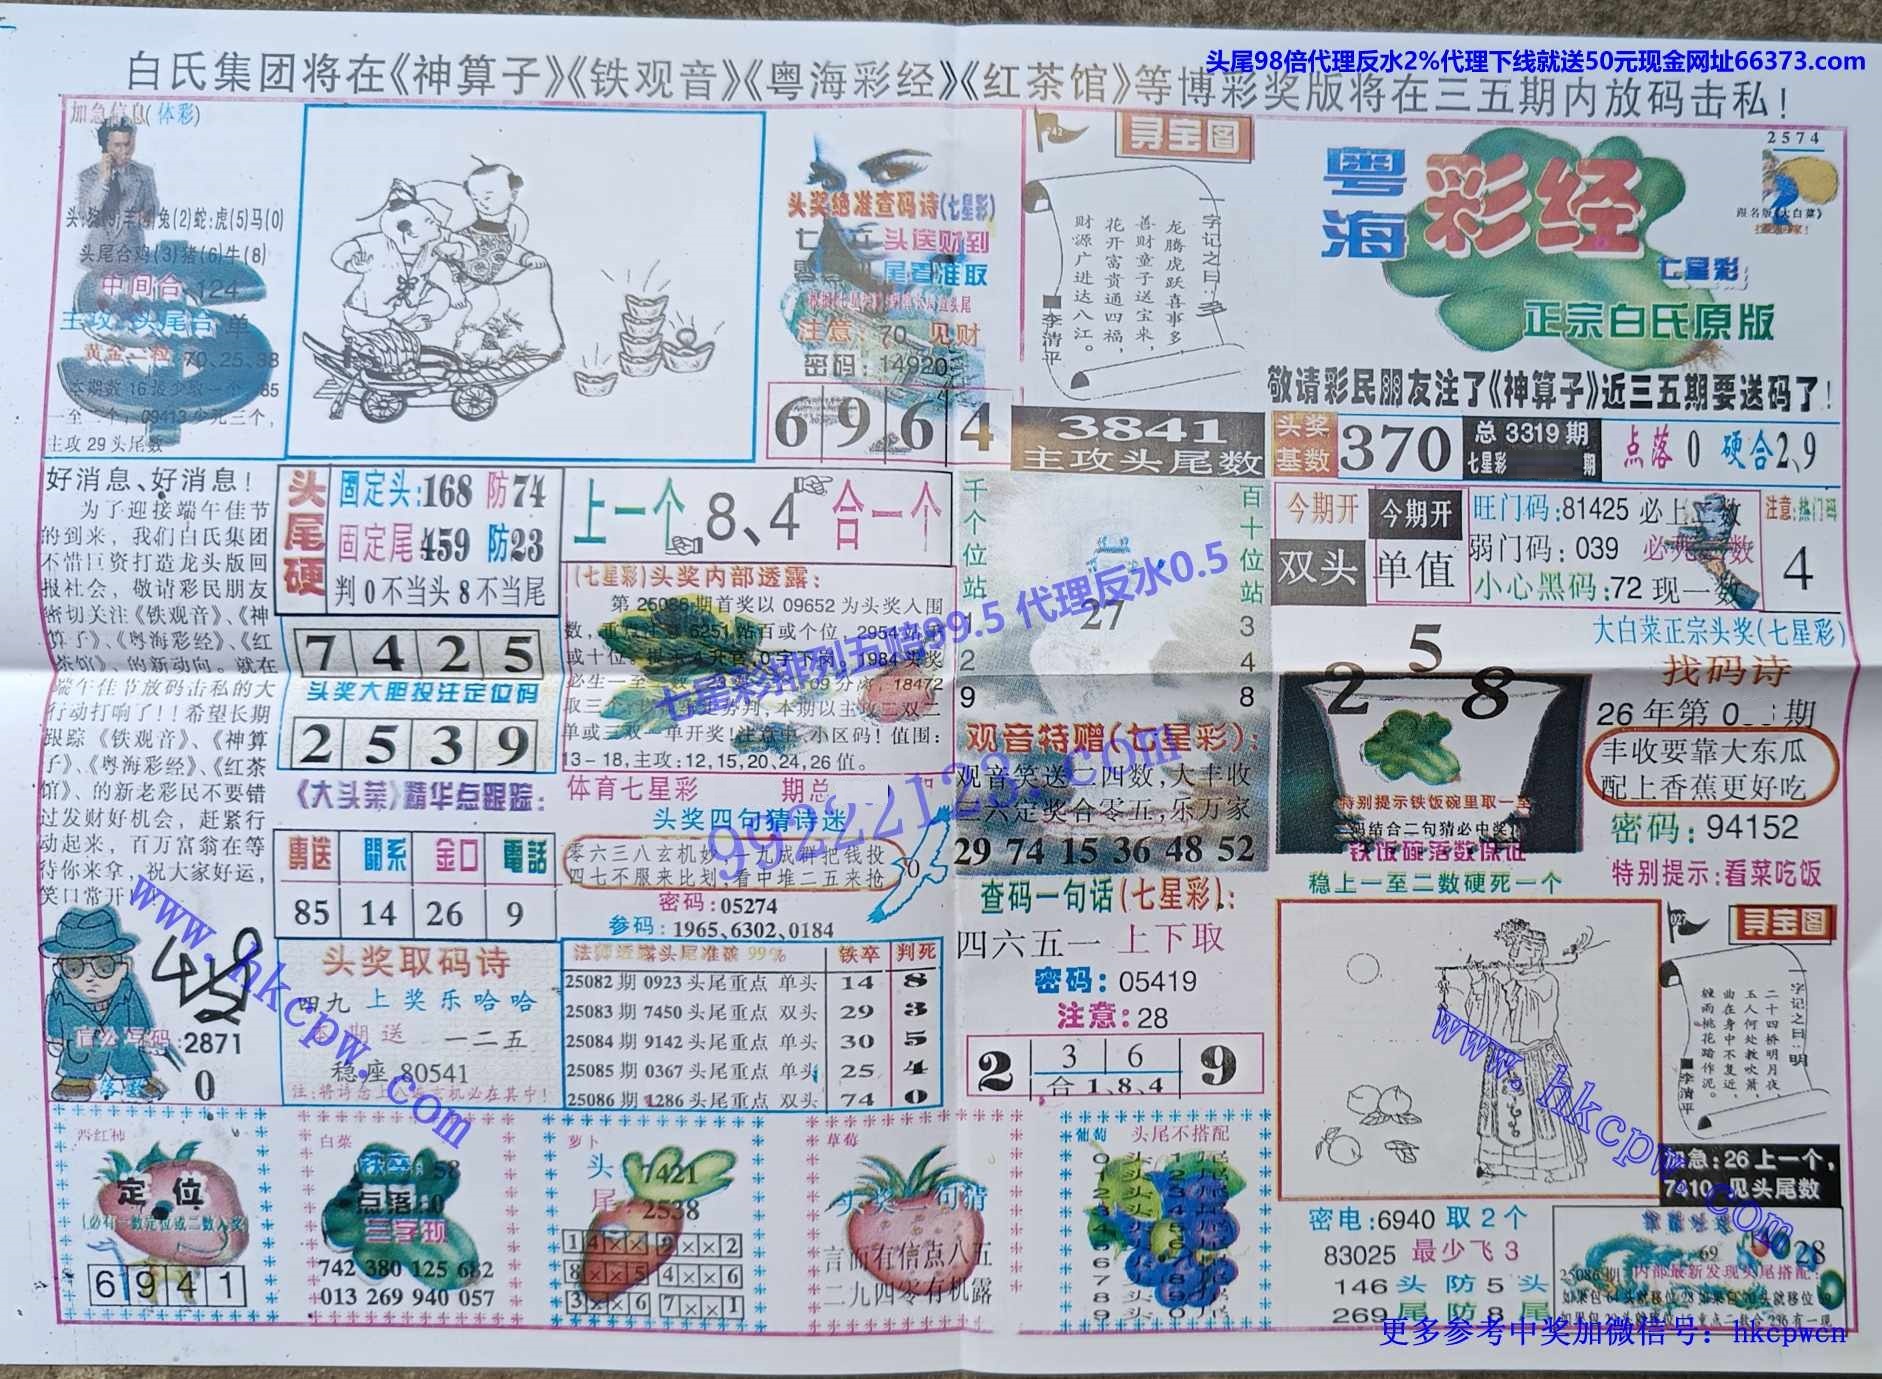 头尾98倍代理反水2%代理下线就送50元现金网址66373.com
白氏集团将在《神算子》《铁观音》《粤海彩经》《红茶馆》等博彩奖版将在三五期内放码击私!
加急信息(体彩)
头尾合鸡(3)猪(6)牛(8)
中间合:124
主攻:头尾合 单
主攻29头尾数
头奖绝准查码诗(七星彩)
注意:70 见财
密码:14920
6 9 6 4
寻宝图
一字记之曰:多
龙腾虎跃喜事多,
善财童子送宝来,
花开富贵通四福,
财源广进达八江。
李清平
3841
主攻头尾数
2574
粤海彩经
七星彩
正宗白氏原版
敬请彩民朋友注了《神算子》近三五期要送码了!
头奖基数
370
总3319期
七星彩 期
点落0 硬合2、9
好消息、好消息!
为了迎接端午佳节
的到来,我们白氏集团
不惜巨资打造龙头版回
报社会,敬请彩民朋友
密切关注《铁观音》、《神
算子》、《粤海彩经》、《红
茶馆》、的新动向。就在
端午佳节放码击私的大
行动打响了!!希望长期
跟踪《铁观音》、《神算
子》、《粤海彩经》、《红茶
馆》、的新老彩民不要错
过发财好机会,赶紧行
动起来,百万富翁在等
待你来拿,祝大家好运,
笑口常开
头尾硬
固定头:168 防74
固定尾459 防23
判0不当头8不当尾
7 4 2 5
头奖大胆投注定位码
2 5 3 9
《大头菜》精华点跟踪:
專送 關系 金口 電話
85 14 26 9
上一个 8、4 合一个
(七星彩)头奖内部透露:
第25086期首奖以09652为头奖入围
13-18,主攻:12,15,20,24,26值。
体育七星彩 期总
头奖四句猜诗迷
零六三八玄机妙,一九成群把钱投
四七不服来比划,看中堆二五来抢
密码:05274
参码:1965、6302、0184
千个位站
百十位站
27
1 2 9
3 4 8
观音特赠(七星彩):
观音笑送一四数,大丰收
三六定奖合零五,乐万家
29 74 15 36 48 52
今期开 双头
今期开 单值
旺门码:81425 必上二数
弱门码:039 必死二数
小心黑码:72 现一数
注意:热门码
4
2 5 8
特别提示铁饭碗里取一至
铁饭碗落数保证
稳上一至二数硬死一个
大白菜正宗头奖(七星彩)
找码诗
丰收要靠大东瓜
配上香蕉更好吃
密码:94152
特别提示:看菜吃饭
七星彩排列五赔99.5 代理反水0.5
99222123.com
www.hkcpw.com
2871
0
头奖取码诗
四九 上奖乐哈哈
期送 一二五
稳座 80541
法师透露头尾准确99% 铁卒 判死
25082期0923头尾重点 单头 14 8
25083期7450头尾重点 双头 29 3
25084期9142头尾重点 单头 30 5
25085期0367头尾重点 单头 25 4
25086期1286头尾重点 双头 74 0
查码一句话(七星彩):
四六五一 上下取
密码:05419
注意:28
2 3 6 9
合1、8、4
www.hkcpw.com
寻宝图
一字记之曰:明
二十四桥明月夜,
玉人何处教吹箫,
曲在身中不复近,
缠雨桃花踏作泥。
李清平
加急:26上一个,
7410 见头尾数
定位
6 9 4 1
白菜
铁卒:58
点落:0
三字现
742 380 125 682
013 269 940 057
萝卜
头 7421
尾 2538
1 4 × × 9 × × 2
8 × × 5 4 × × 6
3 × × 6 7 × × 1
草莓
头奖二句猜
言而有信点八五
二九四零有机露
葡萄 头尾不搭配
密电:6940 取2个
83025 最少飞3
146 头防5头
269 尾防8尾
69 028
内部最新发现头尾搭配:
更多参考中奖加微信号:hkcpwcn